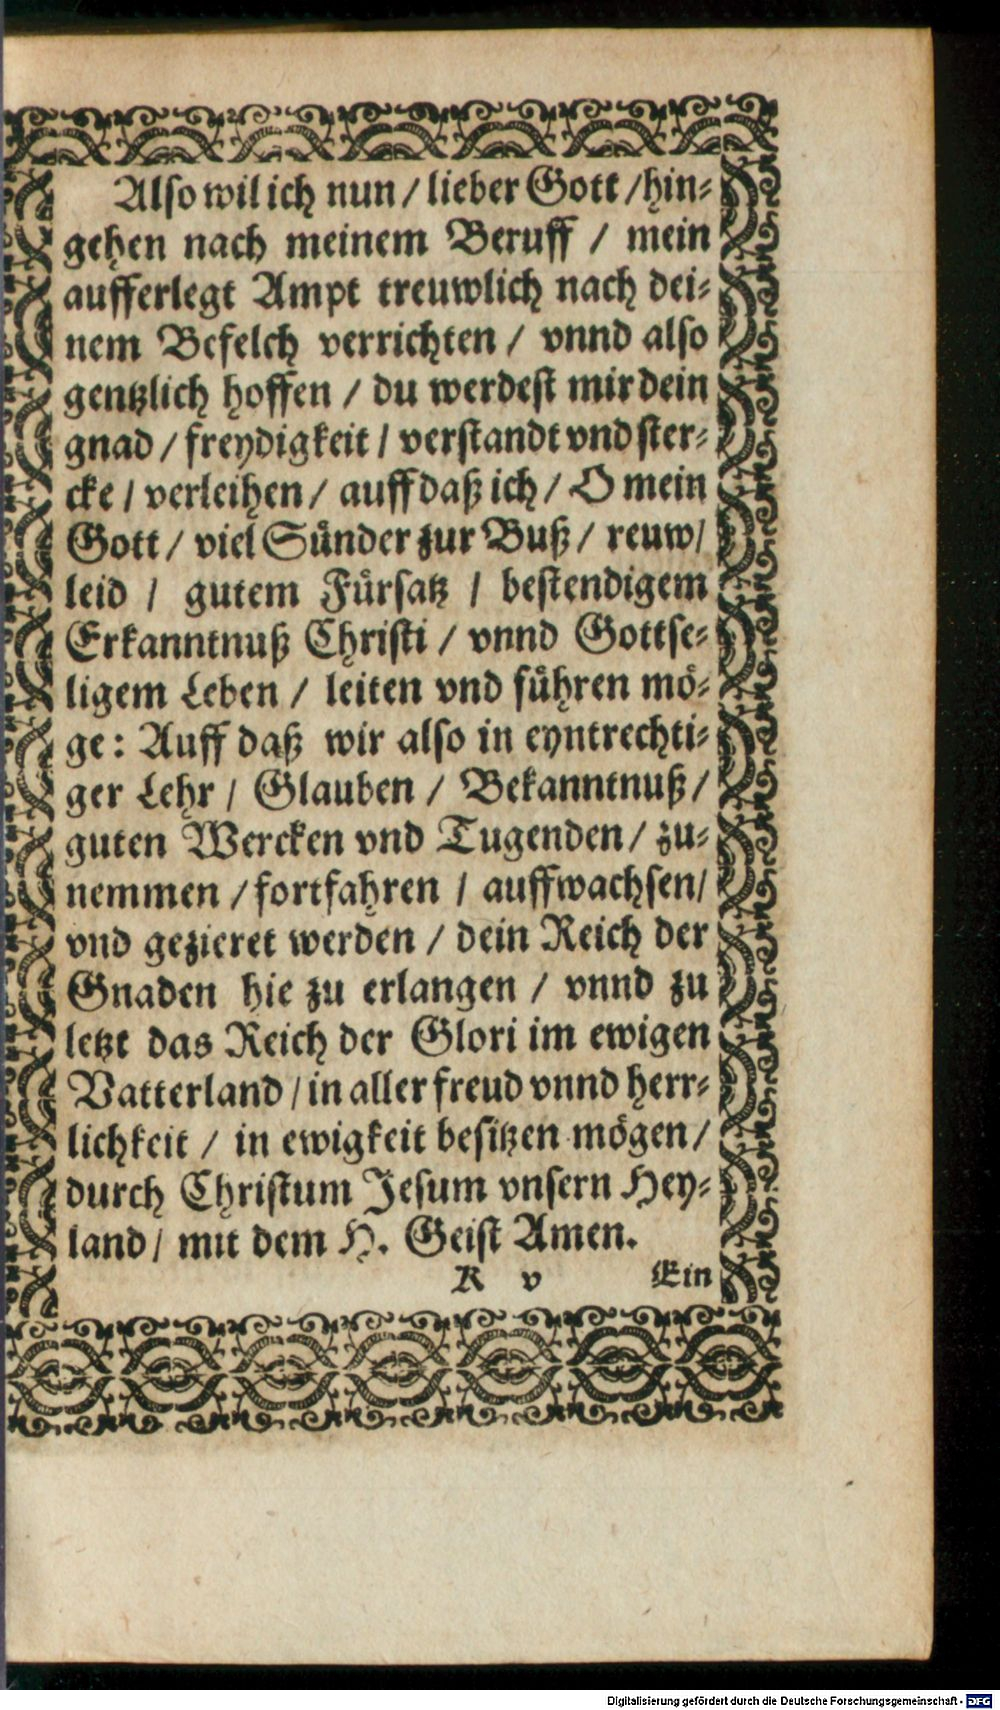 Also wil ich nun / lieber Gott / hin-
gehen nach meinem Beruff / mein
aufferlegt Ampt treuwlich nach dei-
nem Befelch verrichten / vnnd also
gentzlich hoffen / du werdest mir dein
gnad / freydigkeit / verstandt vnd ster-
cke / verleihen / auff daß ich / O mein
Gott / viel Sünder zur Buß / reuw /
leid / gutem Fürsatz / bestendigem
Erkanntnuß Christi / vnnd Gottse-
ligem Leben / leiten vnd führen mö-
ge : Auff daß wir also in eyntrechti-
ger Lehr / Glauben / Bekanntnuß /
guten Wercken vnd Tugenden / zu-
nemmen / fortfahren / auffwachsen /
vnd gezieret werden / dein Reich der
Gnaden hie zu erlangen / vnnd zu
letzt das Reich der Glori im ewigen
Vatterland / in aller freud vnnd herr-
lichkeit / in ewigkeit besitzen mögen /
durch Christum Jesum vnsern Hey-
land / mit dem H. Geist Amen.
K v Ein
Digitalisierung gefördert durch die Deutsche Forschungsgemeinschaft - DFG